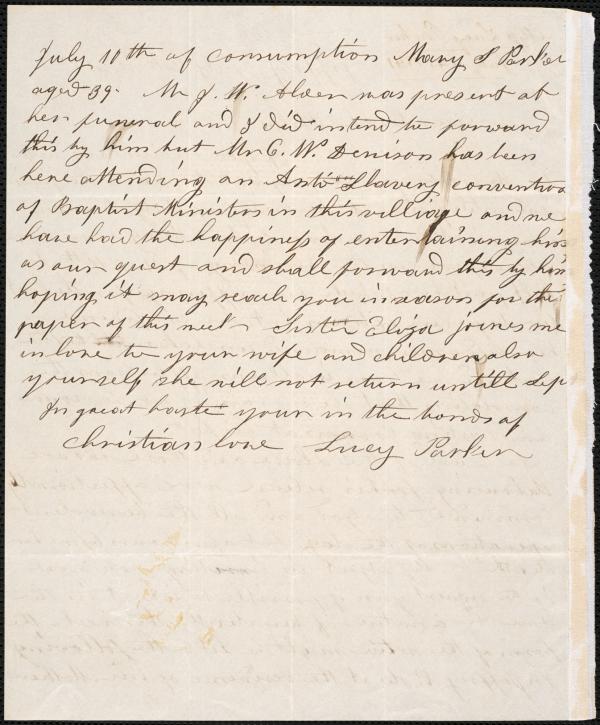 July 10th of consumption Mary S Parker
aged 39. Mr J. W. Alden was present at
her funeral and I did intend to forward
this by him but Mr C. W. Denison has been
here attending an Anti Slavery convention
of Baptist Ministers in this villiage and we
have had the happiness of entertaining him
as our guest and shall forward this by him
hoping it may reach you in season for the
paper of this week Sister Eliza joines me
in love to your wife and children also
yourself she will not return untill Sep
In great haste your in the bonds of
Christian love Lucy Parker